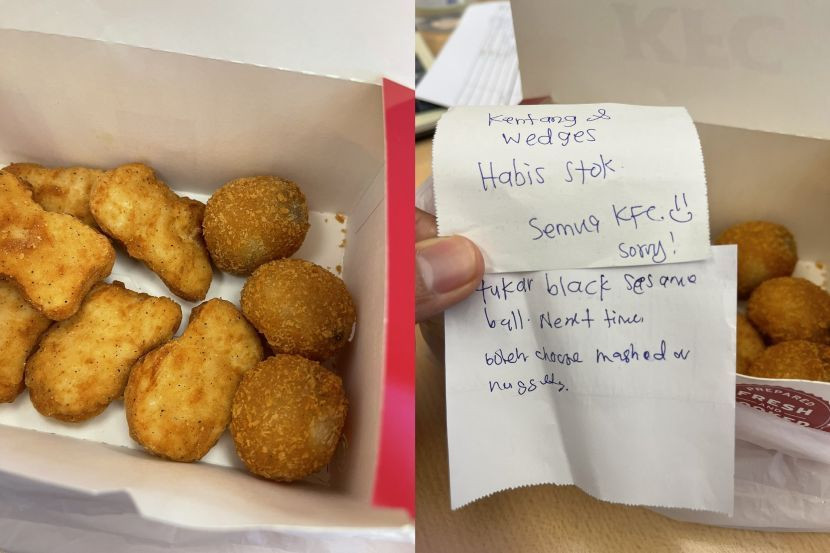 Kentang &
Wedges
Habis stok.
Semua KFC.
sorry!
tukar black sesame
ball. Next time.
boleh choose mashed or
nuggets.
KFC
PREPARED
FRESH
AND